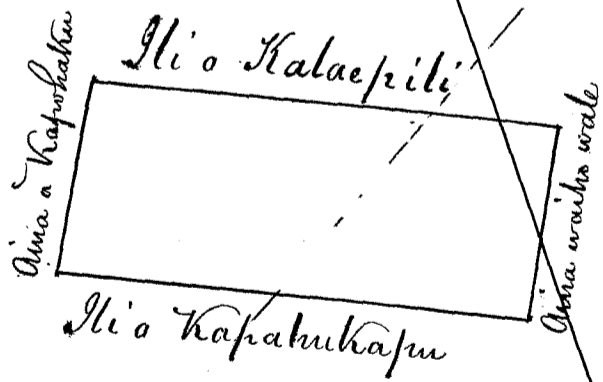 Ili o Kalaepili
Aina o Kapohaku
Aina waiho wale
Ili o Kapahukapu